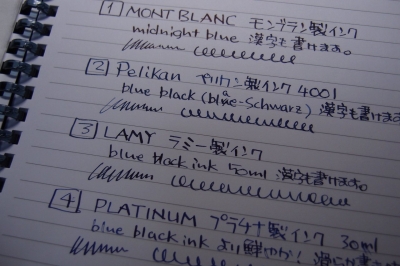 1 MONTBLANC モンブラン製インク
midnight blue 漢字も書けます。
2 Pelikan ペリカン製インク 4001
blue black (blue-Schwarz) 漢字も書けます
3 LAMY ラミー製インク
blue black ink 50ml 漢字も書けます。
4 PLATINUM プラチナ製インク 30ml
blue black ink より鮮やか!